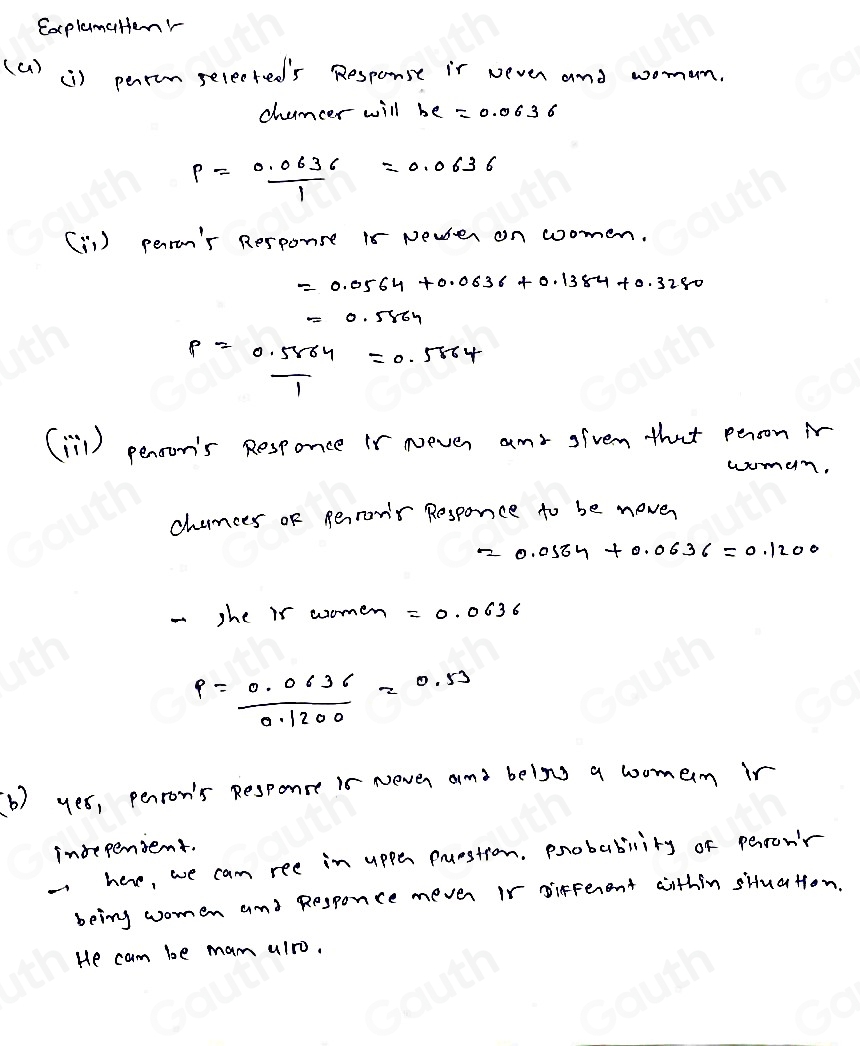 Explanation:-
(a) (i) person selected's Response is Never and woman.
chances will be = 0.0636
P = 0.0636 / 1 = 0.0636
(ii) person's Response is Never or women.
= 0.0564 + 0.0636 + 0.1384 + 0.3280
= 0.5864
P = 0.5864 / 1 = 0.5864
(iii) person's Responce is Never and given that person is
woman.
chances OR person's Responce to be never
= 0.0564 + 0.0636 = 0.1200
- she is women = 0.0636
P = 0.0636 / 0.1200 = 0.53
(b) yes, person's Response is Never and being a women is
independent.
→ here, we can see in upper question. probability of person's
being women and Responce never is Different within situation.
He can be man also.
Gauth